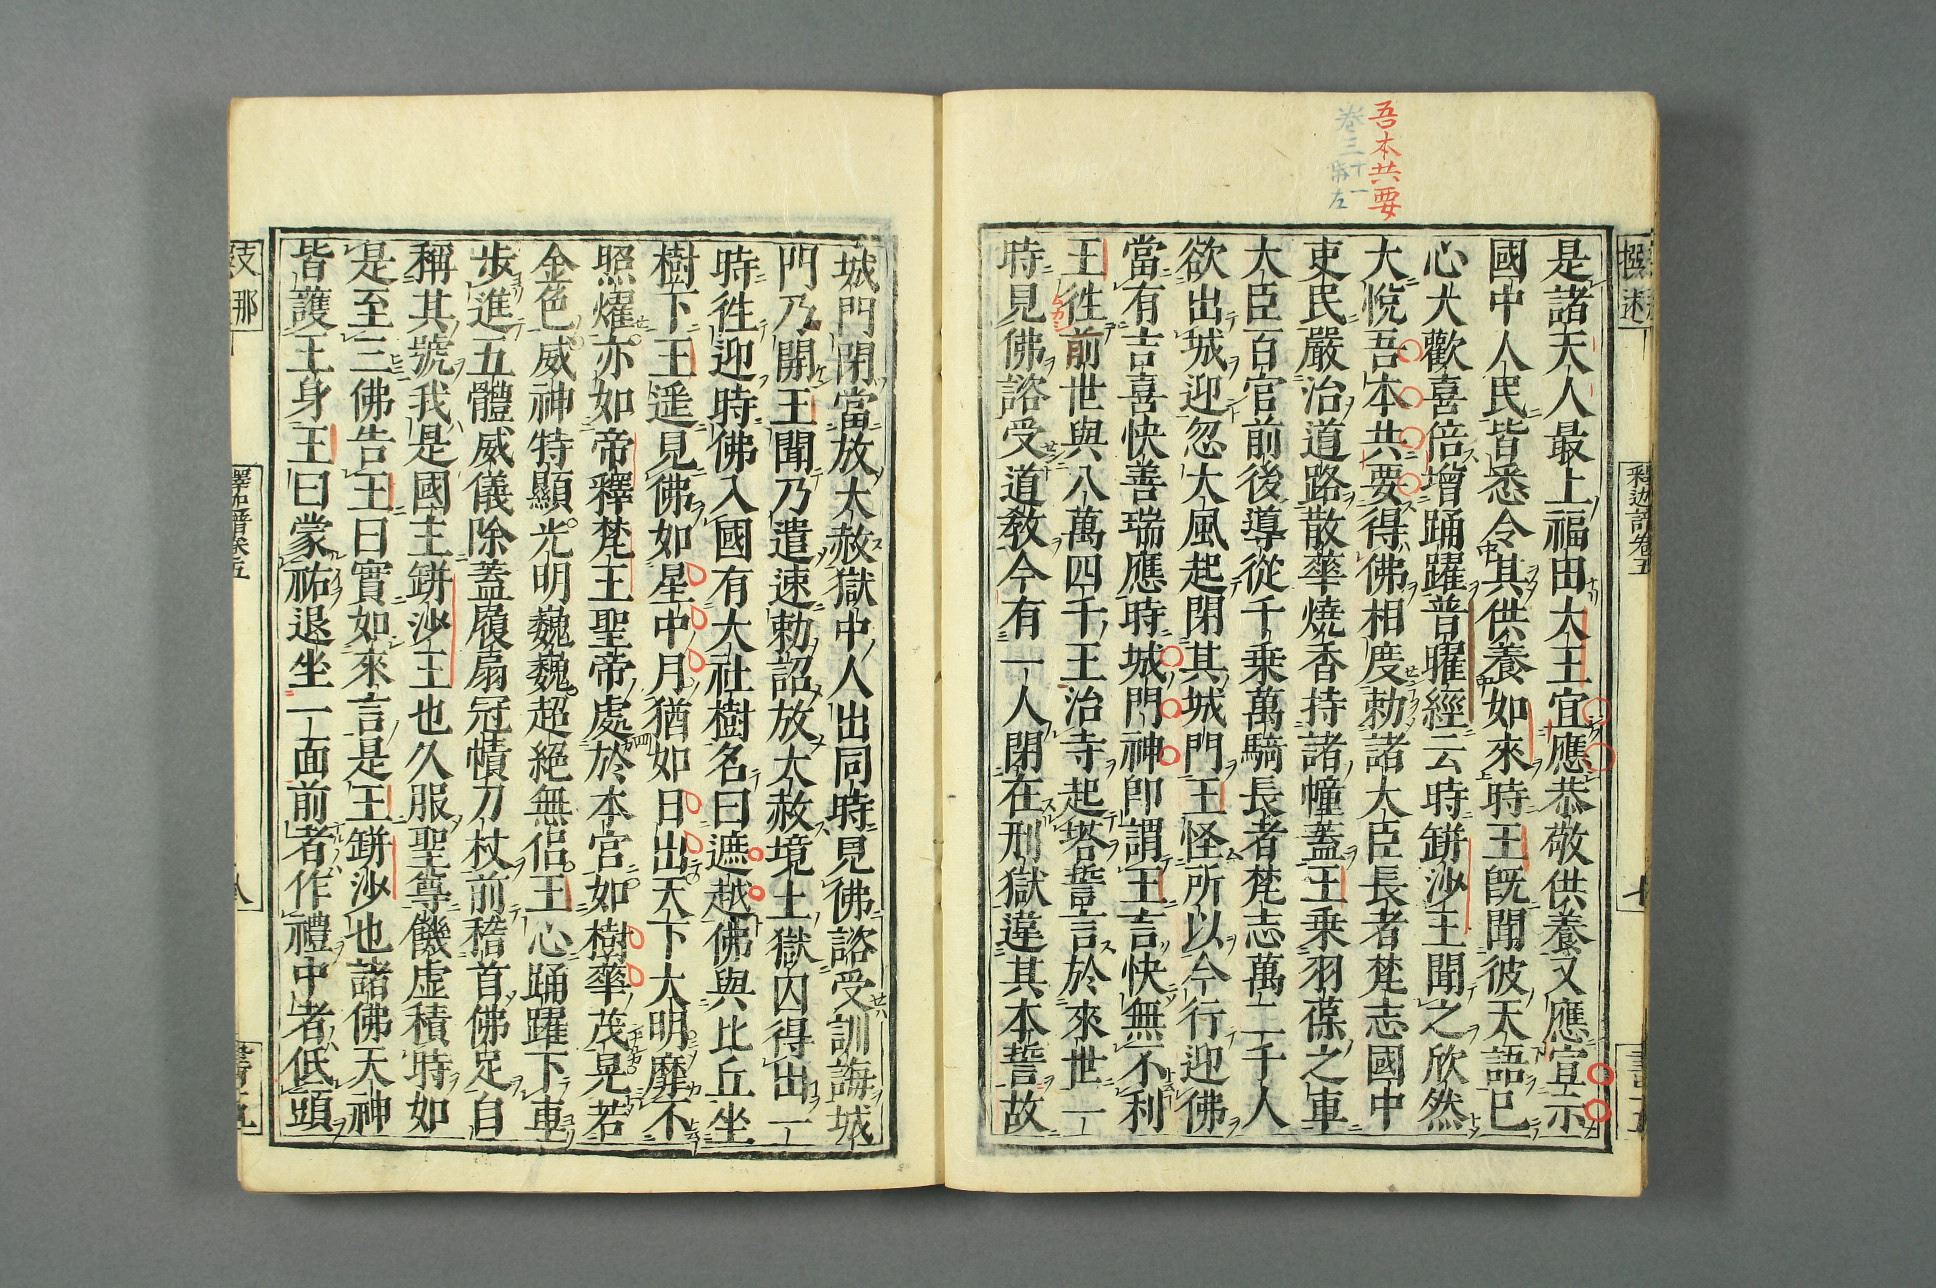 吾本共要
卷三十一
左
是諸天人最上福田大王宜應恭敬供養又應宣示
國中人民皆悉令其供養如來時王既聞彼天語已
心大歡喜倍增踊躍普曜經云時缾沙王聞之欣然
大悅吾本共要得佛相度勅諸大臣長者梵志國中
吏民嚴治道路散華燒香持諸幢蓋王乘羽葆之車
大臣百官前後導從千乘萬騎長者梵志萬二千人
欲出城迎忽大風起閉其城門王怪所以今行迎佛
當有吉喜快善瑞應時城門神即謂王言快無不利
王往前世與八萬四千王治寺起塔誓言於來世一
時見佛諮受道教今有一人閉在刑獄違其本誓故
城門閉當放大赦獄中人出同時見佛諮受訓誨城
門乃開王聞乃遣速勅詔放大赦境土獄囚得出一
時徃迎時佛入國有大社樹名曰遮越佛與比丘坐
樹下王遥見佛如星中月猶如日出天下大明靡不
照燿亦如帝釋梵王聖帝處於本宮如樹華茂晃若
金色威神特顯光明巍巍超絕無侶王心踊躍下車
步進五體威儀除蓋履扇冠幘刀杖前稽首佛足自
稱其號我是國主缾沙王也久服聖尊饑虛積時如
是至三佛告王曰實如來言是王缾沙也諸佛天神
皆護王身王曰蒙祐退坐一面前者作禮中者低頭
撰述
釋迦譜卷五
七
支那
釋迦譜卷五
八